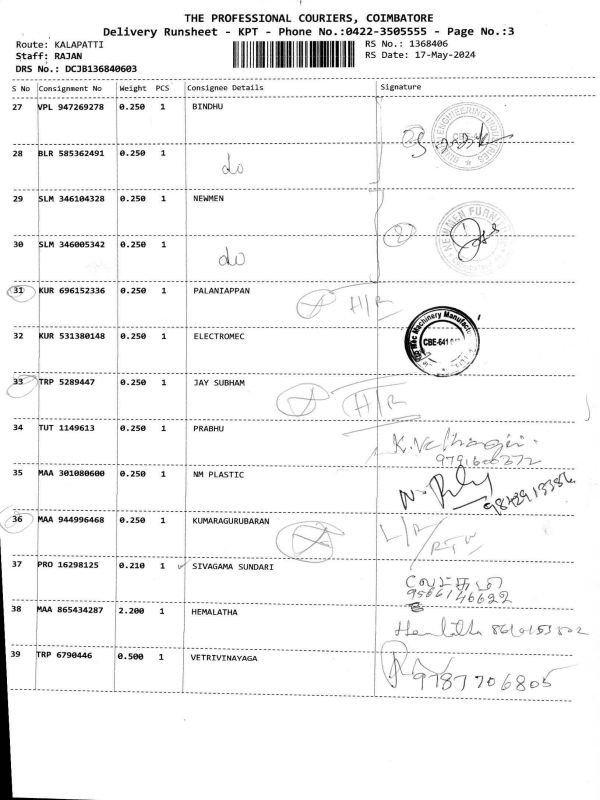 THE PROFESSIONAL COURIERS, COIMBATORE
Delivery Runsheet - KPT - Phone No.:0422-3505555 - Page No.:3
Route: KALAPATTI
RS No.: 1368406
Staff: RAJAN
RS Date: 17-May-2024
DRS No.: DCJB136840603
S No Consignment No Weight PCS Consignee Details Signature
27 VPL 947269278 0.250 1 BINDHU
28 BLR 585362491 0.250 1 do
29 SLM 346104328 0.250 1 NEWMEN
30 SLM 346005342 0.250 1 do
31 KUR 696152336 0.250 1 PALANIAPPAN H/R
32 KUR 531380148 0.250 1 ELECTROMEC CBE-641
33 TRP 5289447 0.250 1 JAY SUBHAM H/R
34 TUT 1149613 0.250 1 PRABHU
35 MAA 301080600 0.250 1 NM PLASTIC
36 MAA 944996468 0.250 1 KUMARAGURUBARAN
37 PRO 16298125 0.210 1 SIVAGAMA SUNDARI
9566146622
38 MAA 865434287 2.200 1 HEMALATHA Hemlatha
39 TRP 6790446 0.500 1 VETRIVINAYAGA 9787706805